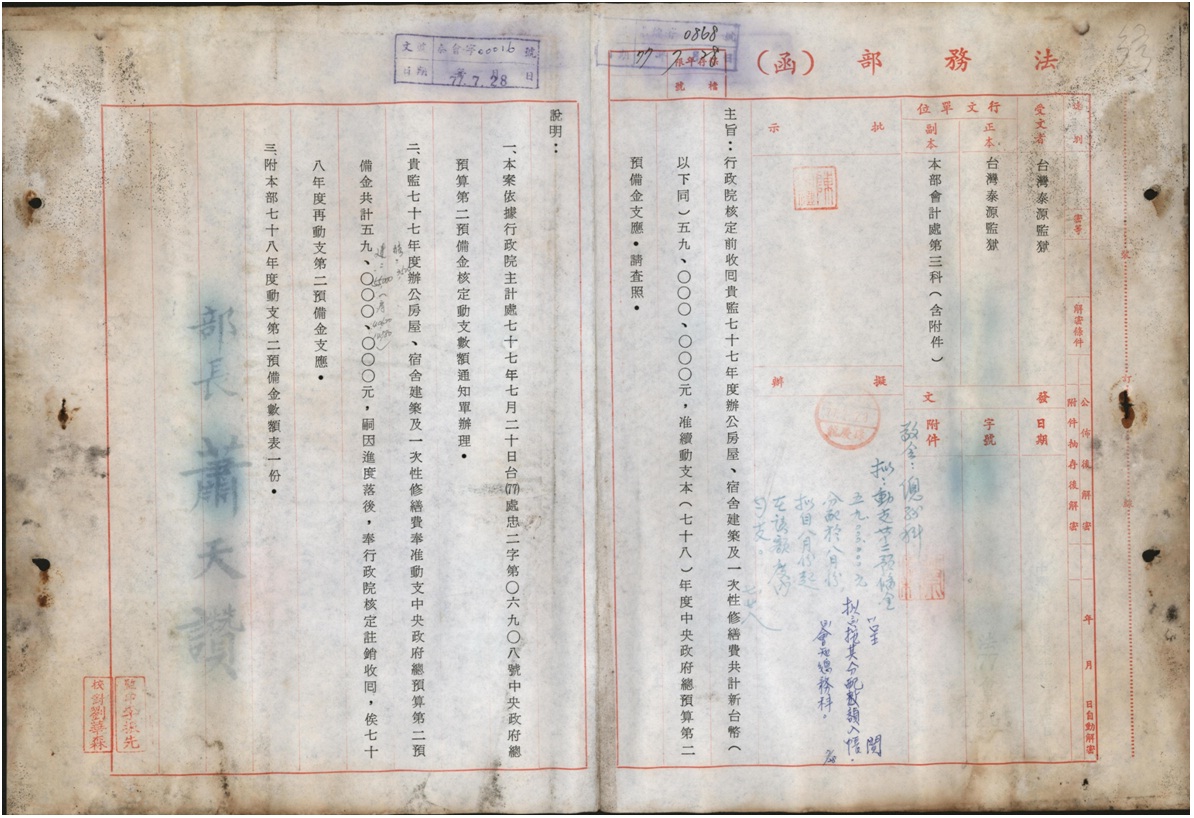 法務部（函）
受文者
台灣泰源監獄
行文單位
正本
台灣泰源監獄
副本
本部會計處第三科（含附件）
批示
擬辦
發文
日期
字號
附件
年月日自動解密
公佈後解密
附件抽存後解密
解密條件
主旨：行政院核定前收回貴監七十七年度辦公房屋、宿舍建築及一次性修繕費共計新台幣（
以下同）五九、〇〇〇、〇〇〇元，准續動支本（七十八）年度中央政府總預算第二
預備金支應。請查照。
0868
77 7 28
檔號
文號
泰會字00016號
日期
77.7.28
說明：
一、本案依據行政院主計處七十七年七月二十日台(77)處忠二字第〇六九〇八號中央政府總
預算第二預備金核定動支數額通知單辦理。
二、貴監七十七年度辦公房屋、宿舍建築及一次性修繕費奉准動支中央政府總預算第二預
備金共計五九、〇〇〇、〇〇〇元，嗣因進度落後，奉行政院核定註銷收回，俟七十
八年度再動支第二預備金支應。
三、附本部七十八年度動支第二預備金數額表一份。
部長 蕭天讚
校對劉華森
敬會：總務科
擬：動支第二預備金
分配於八月份
擬自八月份起
呈
閱